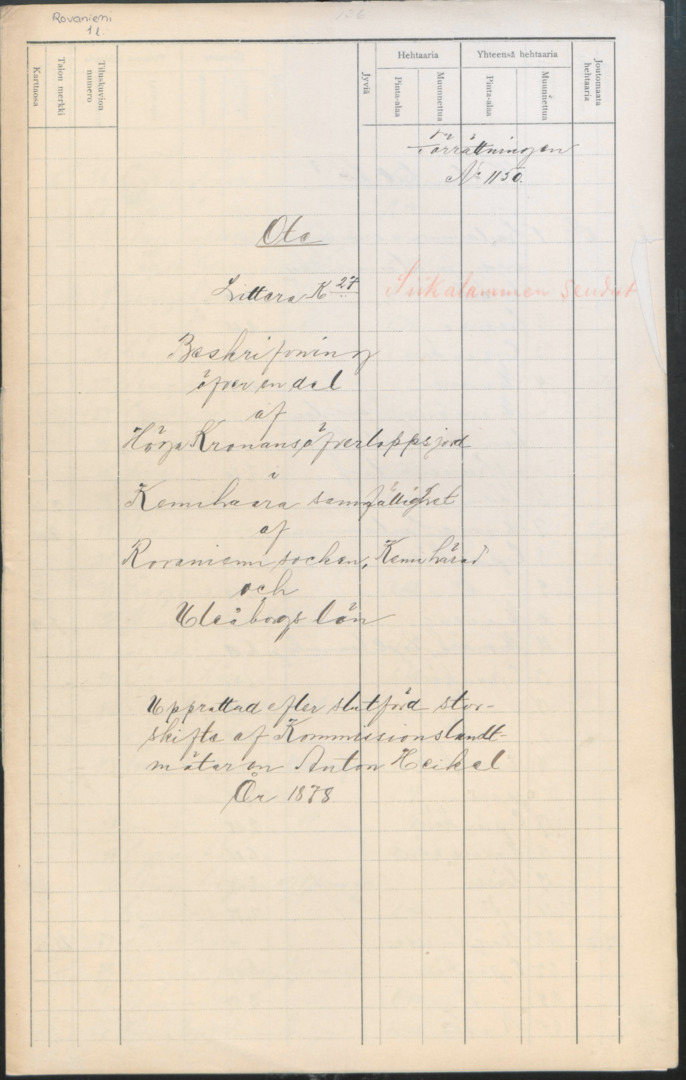 Rovaniemi
1 l
136
Kartta­ossa
Talon merkki
Tiluskuvion numero
Jyviä
Hehtaaria
Pinta-alaa
Muunnettua
Yhteensä hehtaaria
Pinta-alaa
Muunnettua
Joutomaata hehtaaria
Förrättningen
No 1150.
Ote
Littara K 27
Sirkalammen seudut
Beskrifvning
öfver en del
af
Höga Kronans öfverloppsjord
i
Kemihaara samfällighet
af
Rovaniemi socken, Kemi härad
och
Uleåborgs län
Upprättad efter slutförd stor-
skifte af Kommissionslandt-
mätaren Anton Heikel
År 1878